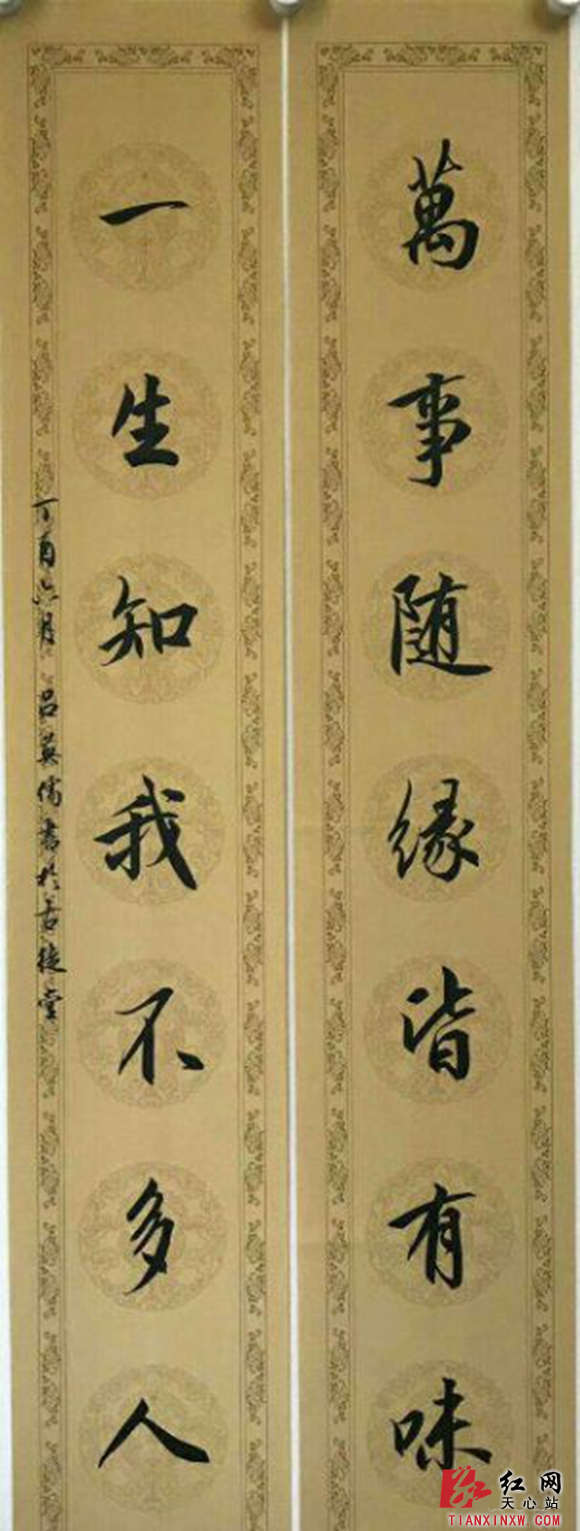 萬事随缘皆有味
一生知我不多人
丁酉六月 吕英儒書於若徒堂
红网
天心站
TIANXINXW.COM